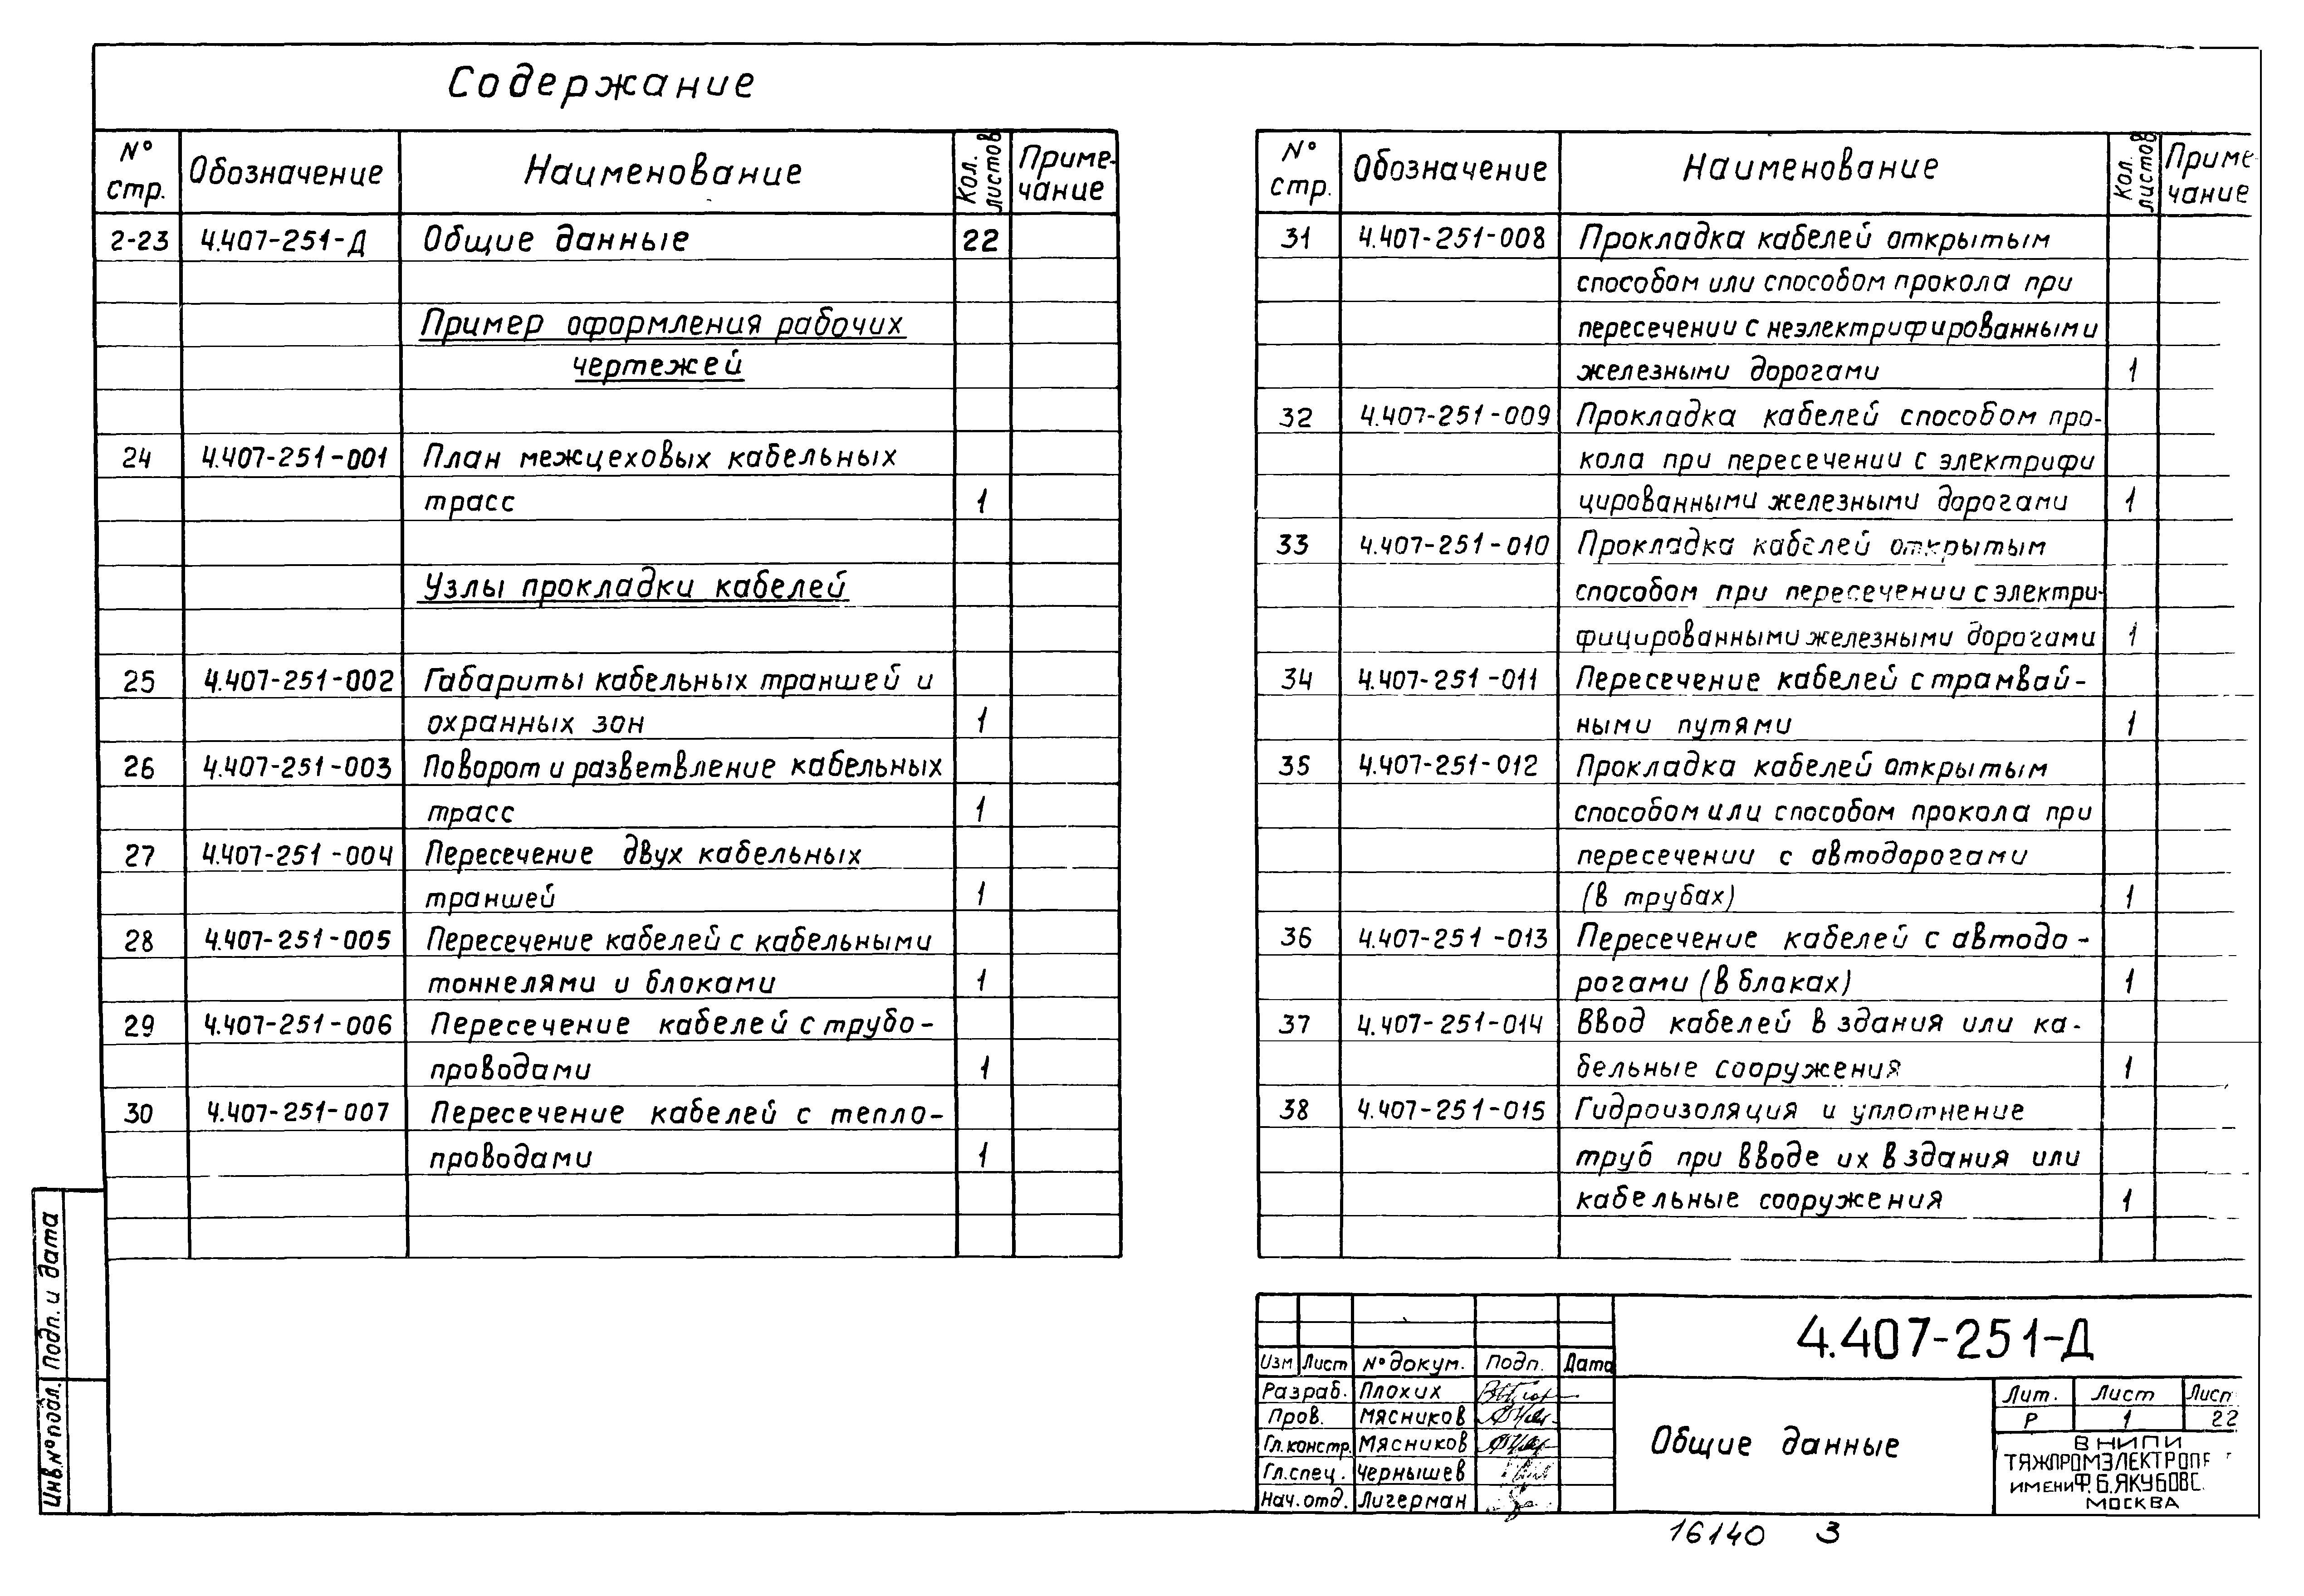 Содержание
№ стр. Обозначение Наименование Кол. листов Приме-чание
2-23 4.407-251-Д Общие данные 22
Пример оформления рабочих
чертежей
24 4.407-251-001 План межцеховых кабельных
трасс 1
Узлы прокладки кабелей
25 4.407-251-002 Габариты кабельных траншей и
охранных зон 1
26 4.407-251-003 Поворот и разветвление кабельных
трасс 1
27 4.407-251-004 Пересечение двух кабельных
траншей 1
28 4.407-251-005 Пересечение кабелей с кабельными
тоннелями и блоками 1
29 4.407-251-006 Пересечение кабелей с трубо-
проводами 1
30 4.407-251-007 Пересечение кабелей с тепло-
проводами 1
№ стр. Обозначение Наименование Кол. листов Приме-чание
31 4.407-251-008 Прокладка кабелей открытым
способом или способом прокола при
пересечении с неэлектрифированными
железными дорогами 1
32 4.407-251-009 Прокладка кабелей способом про-
кола при пересечении с электрифи
цированными железными дорогами 1
33 4.407-251-010 Прокладка кабелей открытым
способом при пересечении с электри-
фицированными железными дорогами 1
34 4.407-251-011 Пересечение кабелей с трамвай-
ными путями 1
35 4.407-251-012 Прокладка кабелей открытым
способом или способом прокола при
пересечении с автодорогами
(в трубах) 1
36 4.407-251-013 Пересечение кабелей с автодо-
рогами (в блоках) 1
37 4.407-251-014 Ввод кабелей в здания или ка-
бельные сооружения 1
38 4.407-251-015 Гидроизоляция и уплотнение
труб при вводе их в здания или
кабельные сооружения 1
Инв.№ подл. Подп. и дата
4.407-251-Д
Изм Лист № докум. Подп. Дата
Разраб. Плохих
Пров. Мясников
Гл.констр. Мясников
Гл.спец. Чернышев
Нач.отд. Лигерман
Общие данные
Лит. Лист Лисп
Р 1 22
ВНИПИ
ТЯЖПРОМЭЛЕКТРОПР
ИМЕНИ Ф.Б.ЯКУБОВС.
МОСКВА
16140 3